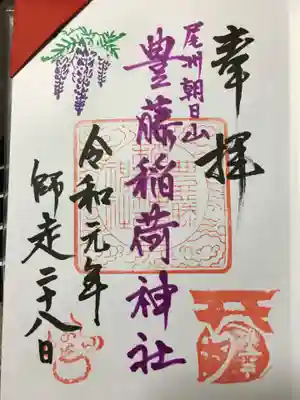 奉拝
尾州朝日山
豊藤稲荷神社
令和元年
師走二十八日